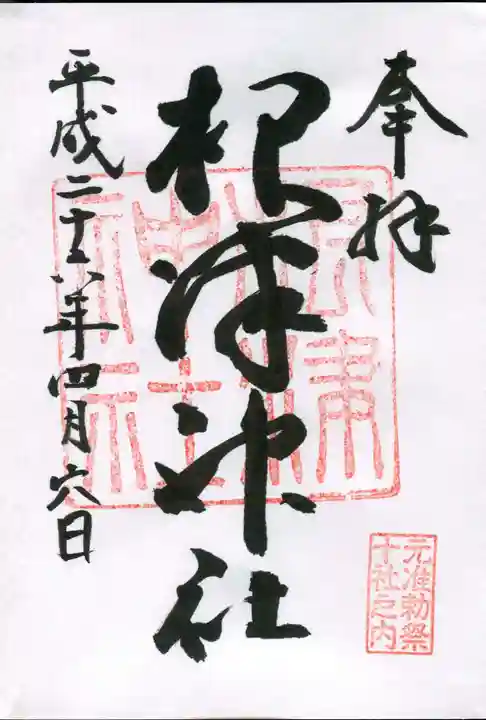 奉拝
根津神社
平成二十八年四月六日
根津神社
元准勅祭
十社之内